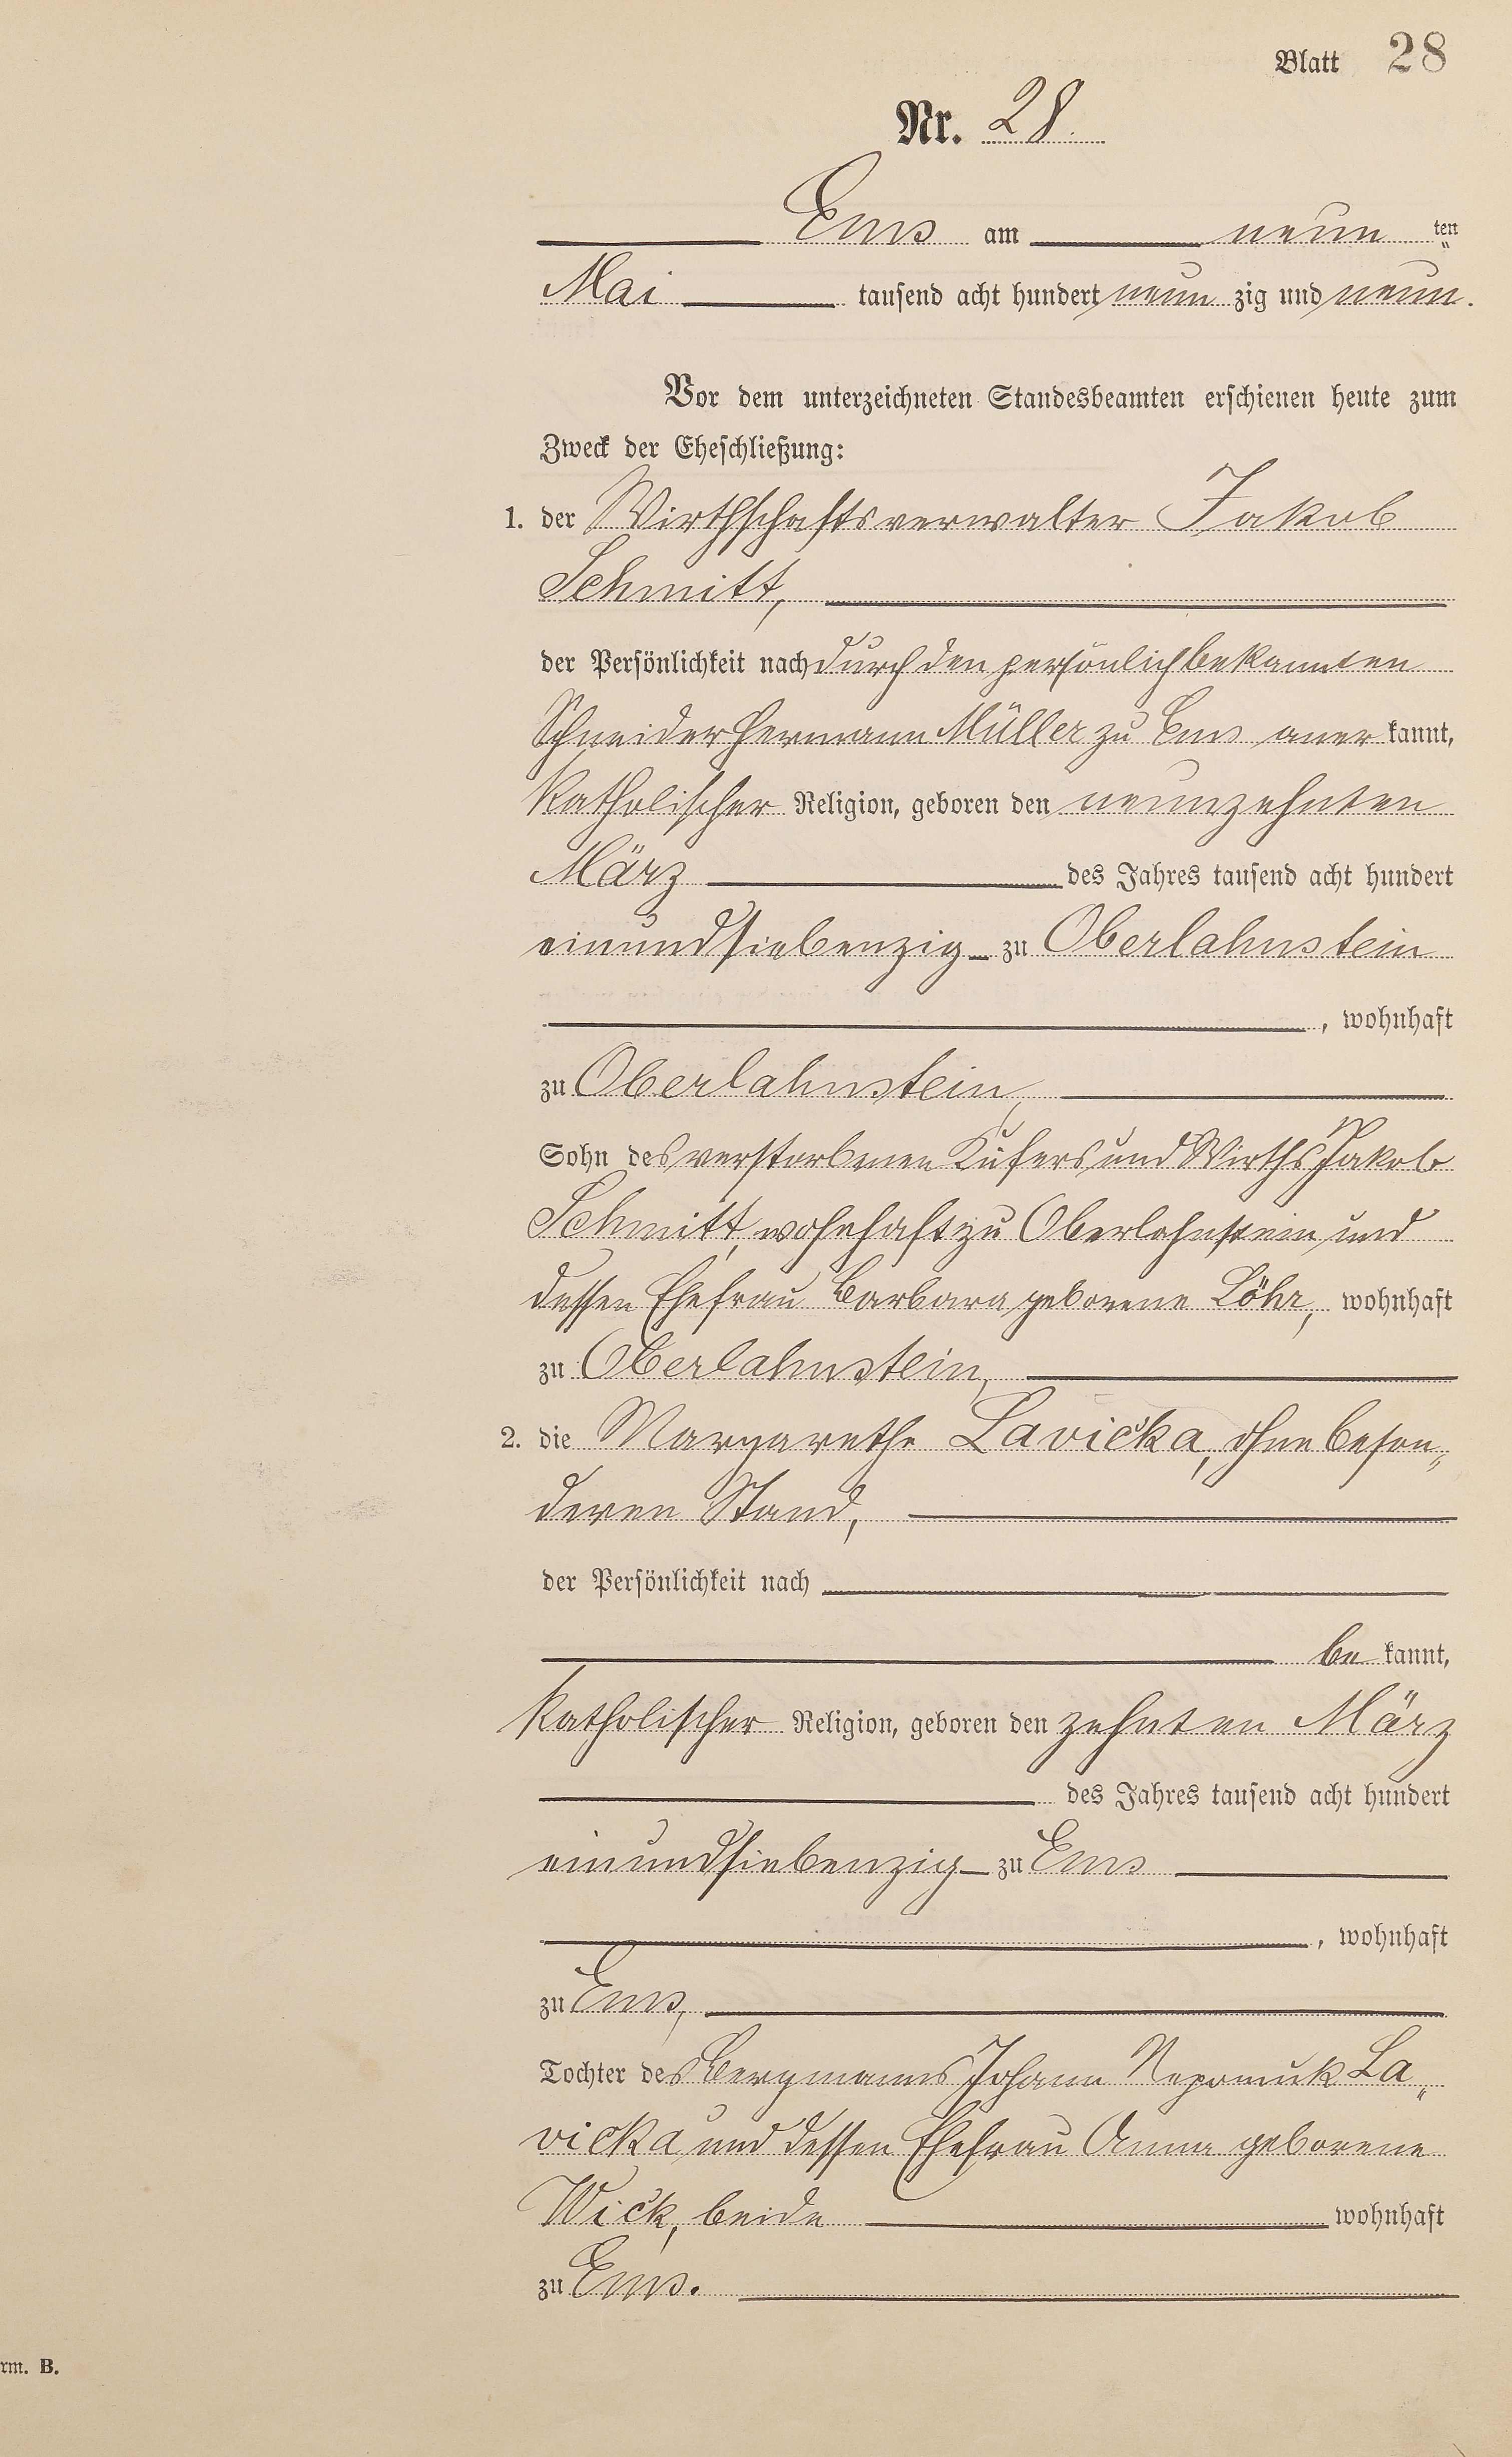 Blatt 28
Nr. 28.
Ems am neun ten
Mai tausend acht hundert neun zig und neun.
Vor dem unterzeichneten Standesbeamten erschienen heute zum
Zweck der Eheschließung:
1. der Wirthschaftsverwalter Jakob
Schmitt,
der Persönlichkeit nach durch den persönlich bekannten
Schneider Hermann Müller zu Ems aner kannt,
katholischer Religion, geboren den neunzehnten
März des Jahres tausend acht hundert
einundsiebenzig zu Oberlahnstein
, wohnhaft
zu Oberlahnstein,
Sohn des verstorbenen Küfers und Wirths Jakob
Schmitt, wohnhaft zu Oberlahnstein und
dessen Ehefrau Barbara geborene Löhr, wohnhaft
zu Oberlahnstein,
2. die Margarethe Lavička, ohne beson„
deren Stand,
der Persönlichkeit nach
be kannt,
katholischer Religion, geboren den zehnten März
des Jahres tausend acht hundert
einundsiebenzig zu Ems
, wohnhaft
zu Ems,
Tochter des Bergmanns Johann Nepomuk La„
vička und dessen Ehefrau Anna geborene
Wičk, beide wohnhaft
zu Ems.
rm. B.